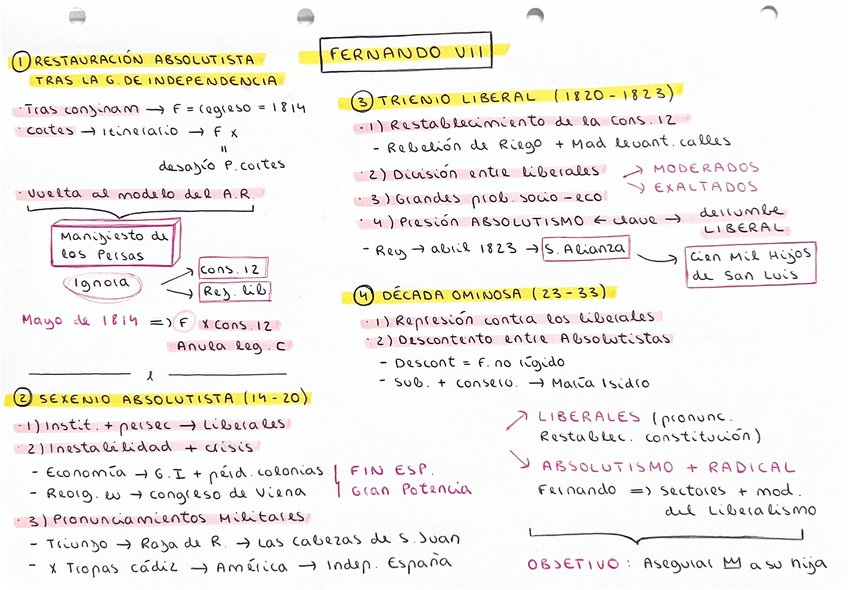 FERNANDO VII
① RESTAURACIÓN ABSOLUTISTA
TRAS LA G. DE INDEPENDENCIA
· Tras confinam → F = regreso = 1814
· cortes → itinerario → F x
=
desafío P. cortes
· Vuelta al modelo del A.R.
Manifiesto de
los Persas
Ignora
Cons. 12
Ref. lib
Mayo de 1814 => F X CONS. 12
Anula leg. C
② SEXENIO ABSOLUTISTA (14-20)
· 1) Instit. + persec → Liberales
· 2) Inestabilidad + crisis
- Economía → G.I + pérd. colonias
- Reorg. eu → congreso de Viena
FIN ESP.
Gran Potencia
· 3) Pronunciamientos Militares
- Triunfo → Rafa de R. → Las cabezas de S. Juan
- X Tropas cádiz → América → Indep. España
③ TRIENIO LIBERAL (1820-1823)
· 1) Restablecimiento de la Cons. 12
- Rebelión de Riego + Mad levant. calles
· 2) División entre liberales
MODERADOS
EXALTADOS
· 3) Grandes prob. socio-eco
· 4) Presión ABSOLUTISMO ← clave → derrumbe
LIBERAL
- Rey → abril 1823 → S. Alianza
Cien Mil Hijos
de San Luis
④ DÉCADA OMINOSA (23-33)
· 1) Represión contra los liberales
· 2) Descontento entre Absolutistas
- Descont = F. no rígido
- Sub. + conserv. → María Isidro
LIBERALES (pronunc.
Restablec. constitución)
ABSOLUTISMO + RADICAL
Fernando => sectores + mod.
del Liberalismo
OBJETIVO: Asegurar a su hija